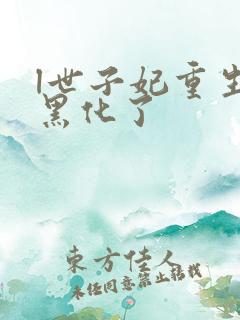 世子妃重生
黑化了
东方佳人
未经同意禁止转载